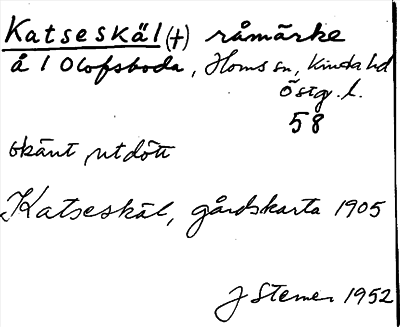 Katseskäl (+) råmärke
å 1 Olofsboda, Horns sn, Kinda hd
Östg. l.
58
okänt, utdött
Katseskäl, gårdskarta 1905
J Stemer 1952